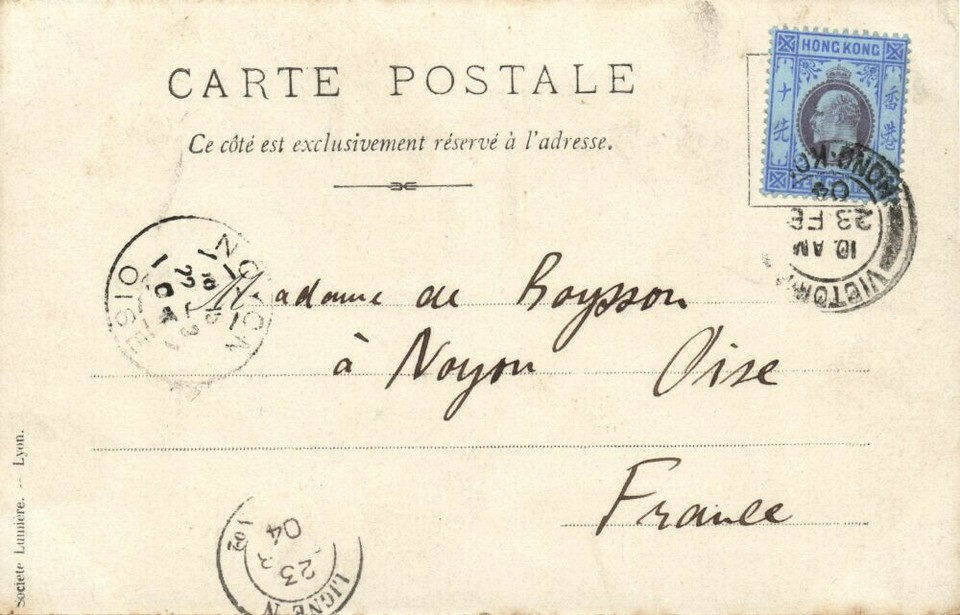 CARTE POSTALE
Ce côté est exclusivement réservé à l'adresse.
HONG KONG
十
先
香
港
VICTOR
HONG·KO
10 AM
23 FE
04
NOYON
OISE
22
Madame de Roysson
à Noyon Oise
France
LIGNE N
23
04
Societe Lumière. — Lyon.